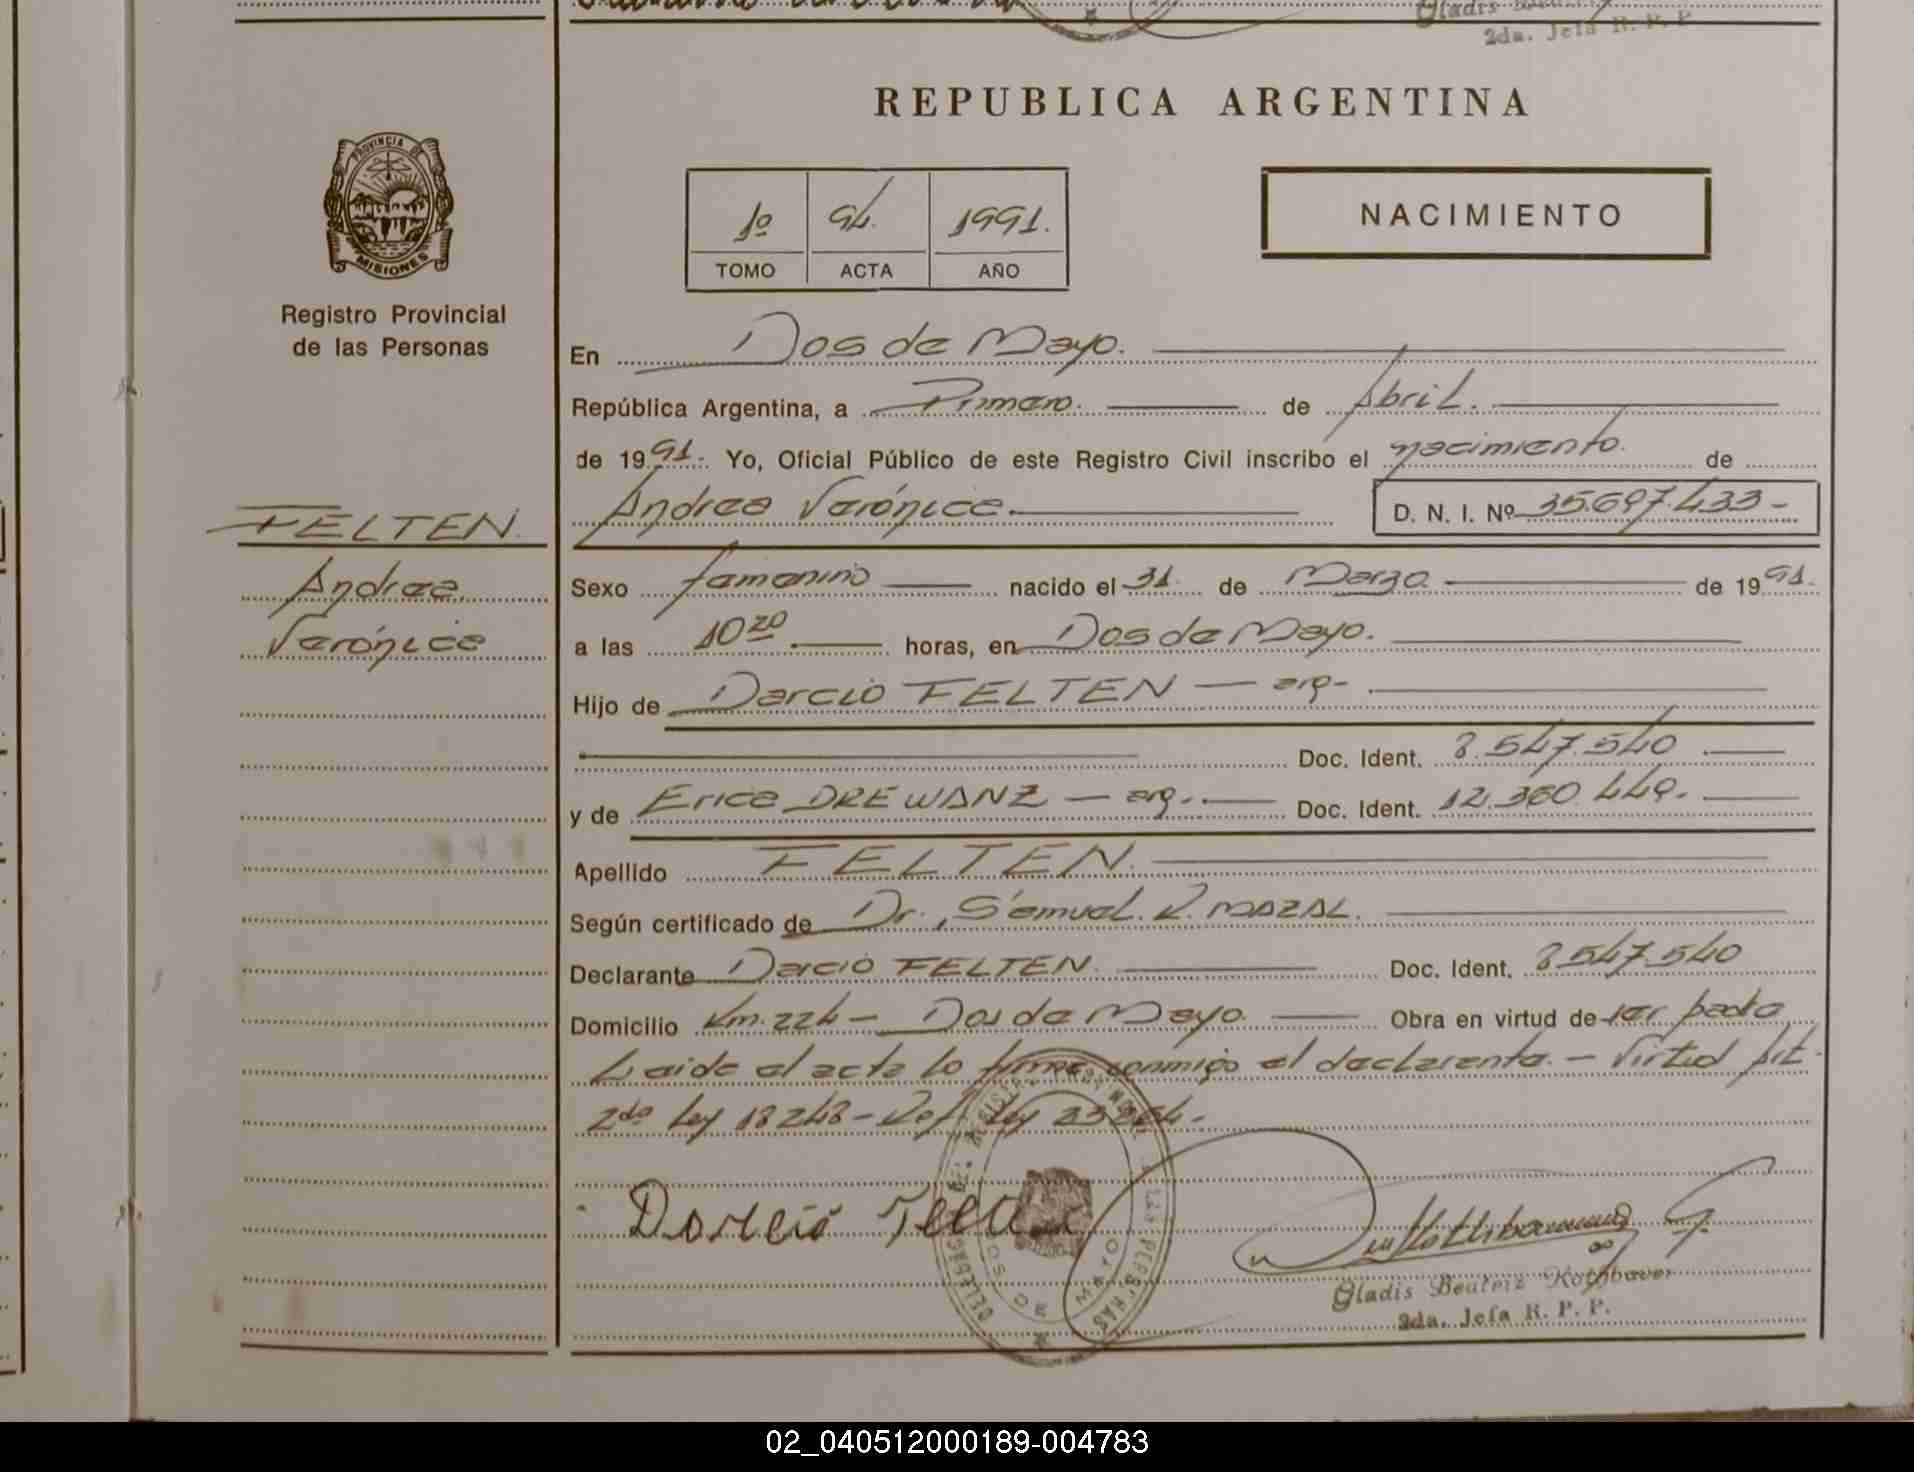 Gladis
2da. Jefa R. P. P
REPUBLICA ARGENTINA
PROVINCIA DE
MISIONES
Registro Provincial
de las Personas
1º 94. 1991.
TOMO ACTA AÑO
NACIMIENTO
En Dos de Mayo.
República Argentina, a Primero. de Abril.
de 1991.- Yo, Oficial Público de este Registro Civil inscribo el nacimiento. de
Andrea Verónica. D. N. I. Nº 35.697.433-
FELTEN.
Andrea
Verónica
Sexo femenino nacido el 31. de Marzo. de 1991.
a las 10 20 horas, en Dos de Mayo.
Hijo de Darcio FELTEN — arg-
Doc. Ident. 8.547.540
y de Erica DREWANZ — arg.- Doc. Ident. 12.360.449.
Apellido FELTEN.
Según certificado de Dr. Samuel. R. MAZAL.
Declarante Darcio FELTEN. Doc. Ident. 8.547.540
Domicilio Km. 224 — Dos de Mayo. Obra en virtud de ser padre
Leida el acta lo firma conmigo el declarante. — Virtud Art.
2do Ley 18248 - Ref. Ley 23264.-
Gladis Beatriz Kothbauer
2da. Jefa R. P. P.
02_040512000189-004783